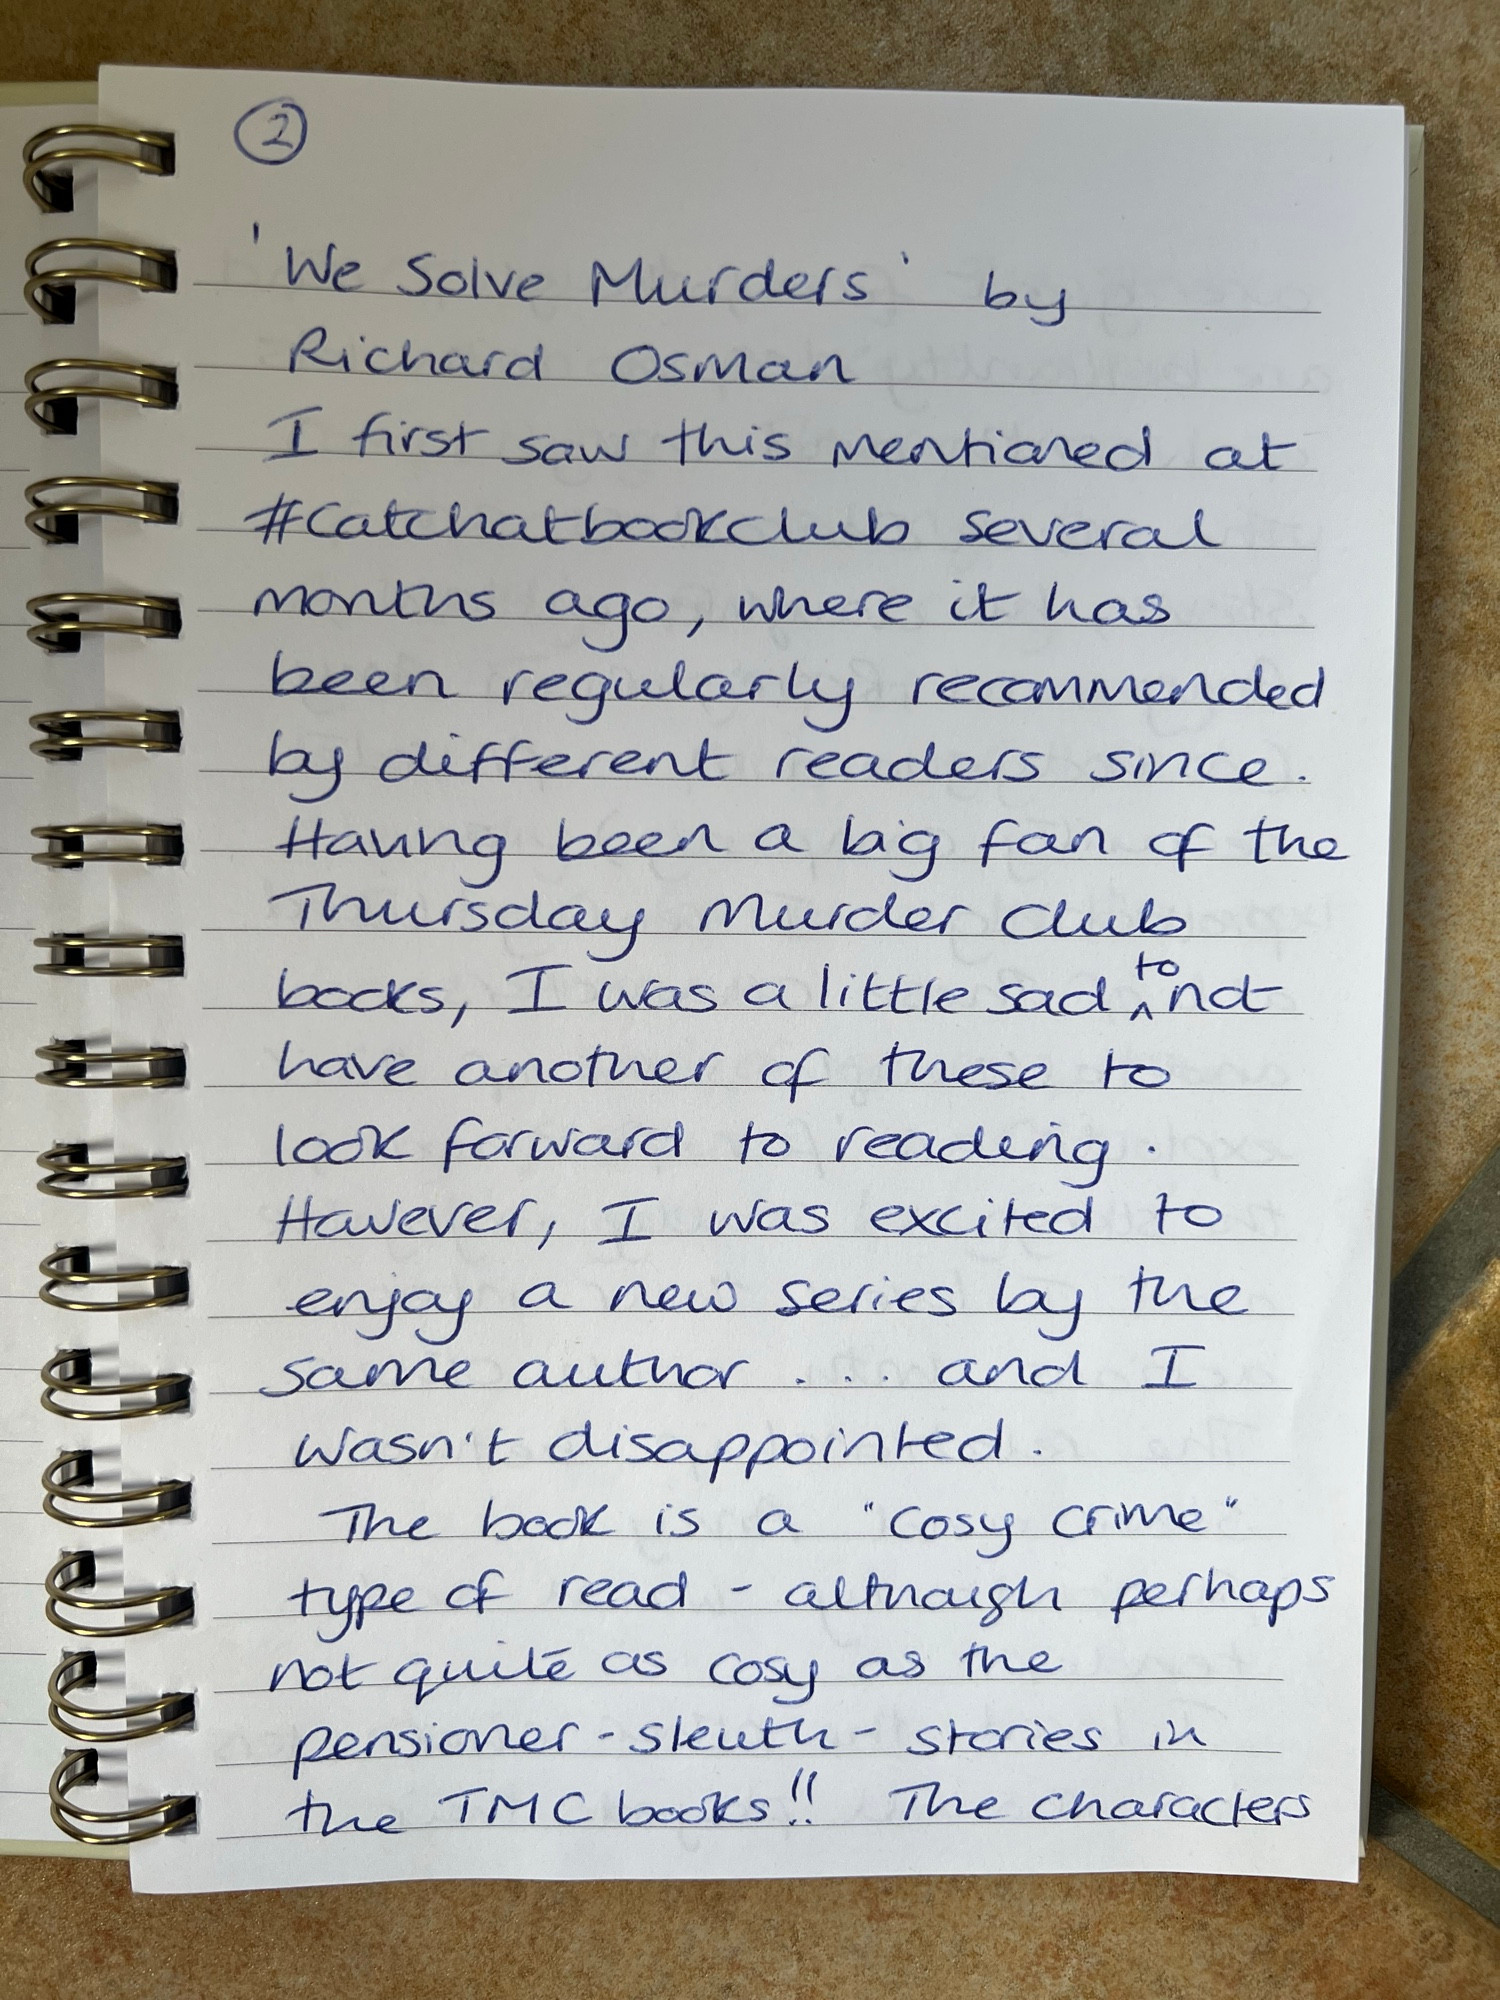 2
'We Solve Murders' by
Richard Osman
I first saw this mentioned at
#Catchatbookclub several
months ago, where it has
been regularly recommended
by different readers since.
Having been a big fan of the
Thursday Murder Club
books, I was a little sad to not
have another of these to
look forward to reading.
However, I was excited to
enjoy a new series by the
same author ... and I
wasn't disappointed.
The book is a "cosy crime"
type of read - although perhaps
not quite as cosy as the
pensioner-sleuth- stories in
the TMC books!! The characters